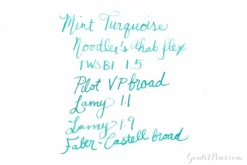 Mint Turquoise
Noodler's Ahab flex
TWSBI 1.5
Pilot VP broad
Lamy 1.1
Lamy 1.9
Faber-Castell broad
GouletPens.com